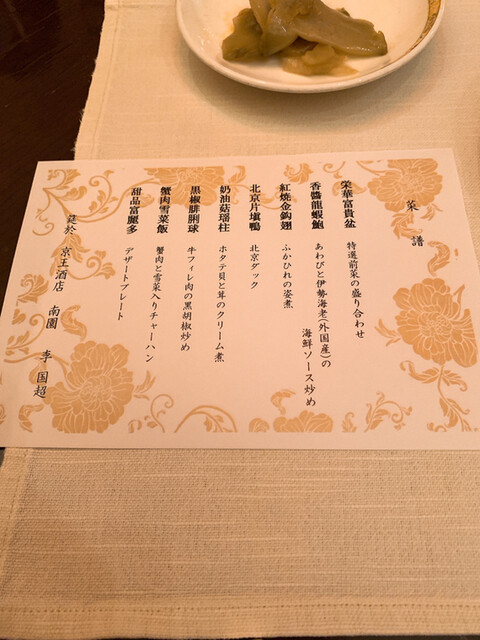 菜譜
榮華富貴盆 特選前菜の盛り合わせ
香醬龍蝦鮑 あわびと伊勢海老(外国産)の
海鮮ソース炒め
紅焼金鈎翅 ふかひれの姿煮
北京片塡鴨 北京ダック
奶油菇瑶柱 ホタテ貝と茸のクリーム煮
黒椒腓脷球 牛フィレ肉の黒胡椒炒め
蟹肉雪菜飯 蟹肉と雪菜入りチャーハン
甜品富麗多 デザートプレート
筵於 京王酒店 南園 李国超